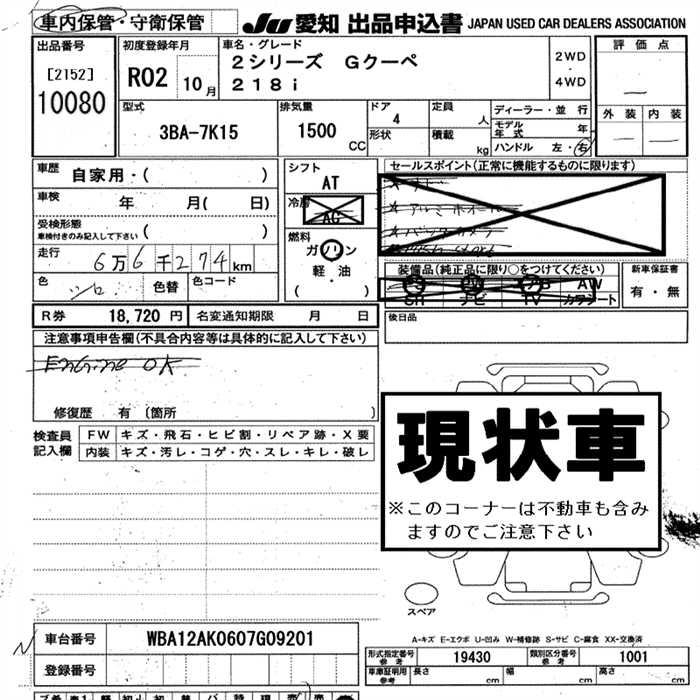 車内保管・守衛保管 JU 愛知 出品申込書 JAPAN USED CAR DEALERS ASSOCIATION
出品番号 初度登録年月 車名・グレード 評価点
[2152] R02 10月 2シリーズ Gクーペ 2WD
10080 218i ・ 4WD
外装 内装
型式 排気量 ドア 定員 ディーラー・並行
3BA-7K15 1500 CC 4 人 モデル年式 年
形状 積載 kg ハンドル 左・右
車歴 自家用・( ) シフト セールスポイント(正常に機能するものに限ります)
車検 年 月( 日) AT
受検形態 ( ) 冷房
車検付きのみ記入して下さい AC
走行 燃料
6万6千274km ガソリン
色 色替 色コード 軽・油 装備品(純正品に限り○をつけてください) 新車保証書
シロ ( ) AW 有・無
SR ナビ TV カワシート
R券 18,720円 名変通知期限 月 日 後日品
注意事項申告欄(不具合内容等は具体的に記入して下さい)
Engine OK
修復歴 有 〔箇所 〕
検査員 FW キズ・飛石・ヒビ割・リペア跡・X要
記入欄 内装 キズ・汚レ・コゲ・穴・スレ・キレ・破レ
現状車
※このコーナーは不動車も含み
ますのでご注意下さい
スペア
A-キズ E-エクボ U-凹み W-補修跡 S-サビ C-腐食 XX-交換済
車台番号 WBA12AK0607G09201 型式指定番号 参考 19430 類別区分番号 参考 1001
登録番号 車庫証明用 参考 長さ cm 幅 cm 高さ cm